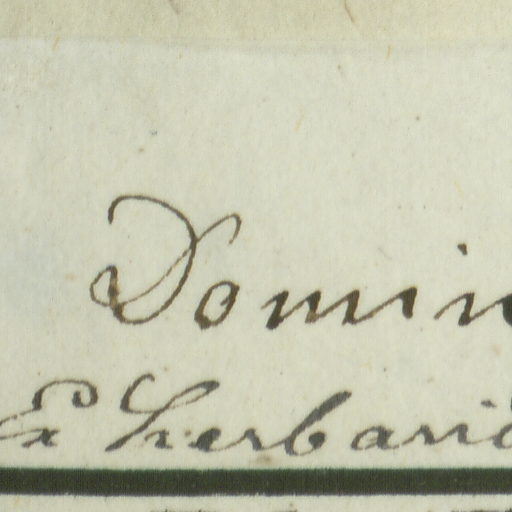 Domin
Ex herbari